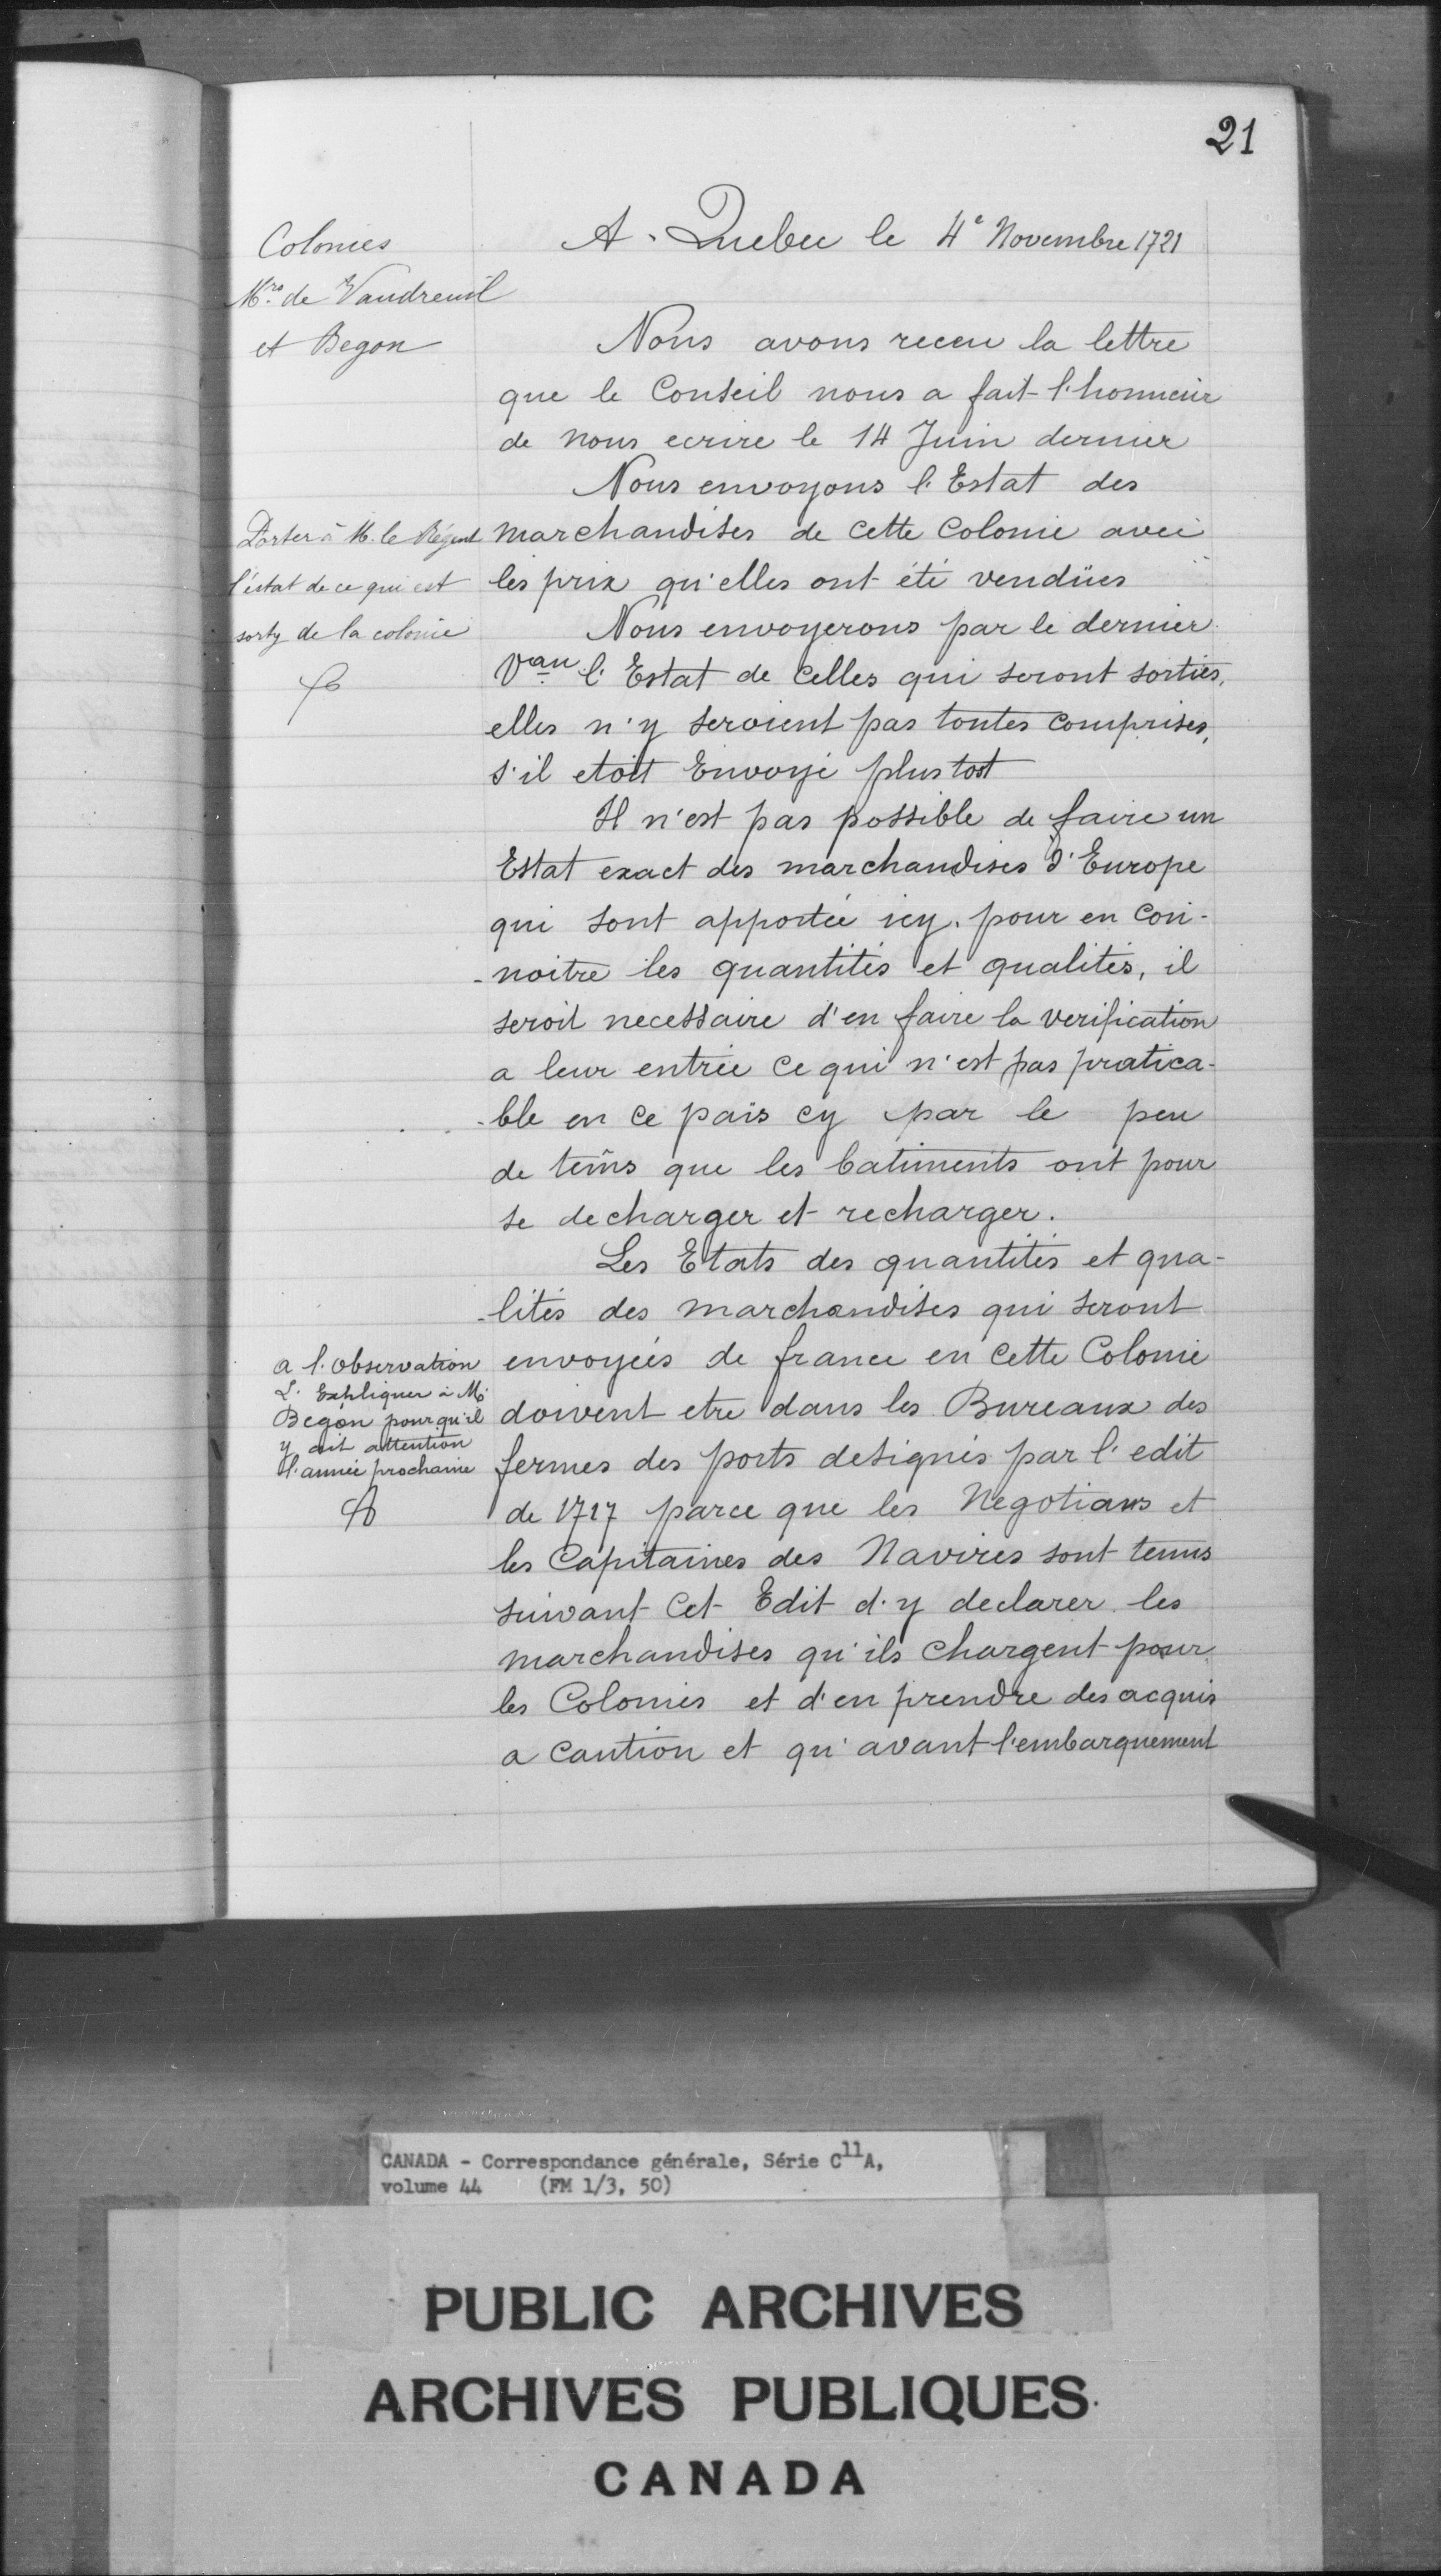 21
Colonies
Mrs de Vaudreuil
et Begon
A. Quebec le 4e Novembre 1721
Nous avons receu la lettre
que le Conseil nous a fait l'honneur
de nous ecrire le 14 Juin dernier
Nous envoyons l'Estat des
marchandises de cette Colonie avec
les prix qu'elles ont été vendües
Porter à M. le Régent
l'estat de ce qui est
sorty de la colonie
Nous envoyerons par le dernier
Vau l'Estat de Celles qui seront sorties,
elles n'y seroient pas toutes comprises,
s'il etoit Envoyé plustost
Il n'est pas possible de faire un
Estat exact des marchandises d'Europe
qui sont apportée icy. pour en con-
-noitre les quantités et qualités, il
seroit necessaire d'en faire la verification
a leur entrée Ce qui n'est pas pratica-
-ble en Ce païs cy par le peu
de tems que les batiments ont pour
se decharger et recharger.
Les Etats des quantités et qua-
-lités des marchandises qui seront
envoyées de france en Cette Colonie
doivent etre dans les Bureaux des
fermes des ports designés par l'edit
de 1717 parce que les Negotians et
les Capitaines des Navires sont tenus
suivant Cet Edit d'y declarer les
marchandises qu'ils Chargent pour
les Colonies et d'en prendre des acquis
a Caution et qu'avant l'embarquement
a l'observation
L'Expliquer à M.
Begon pour qu'il
y ait attention
l'année prochaine
CANADA - Correspondance générale, Série C11A,
volume 44 (FM 1/3, 50)
PUBLIC ARCHIVES
ARCHIVES PUBLIQUES
CANADA